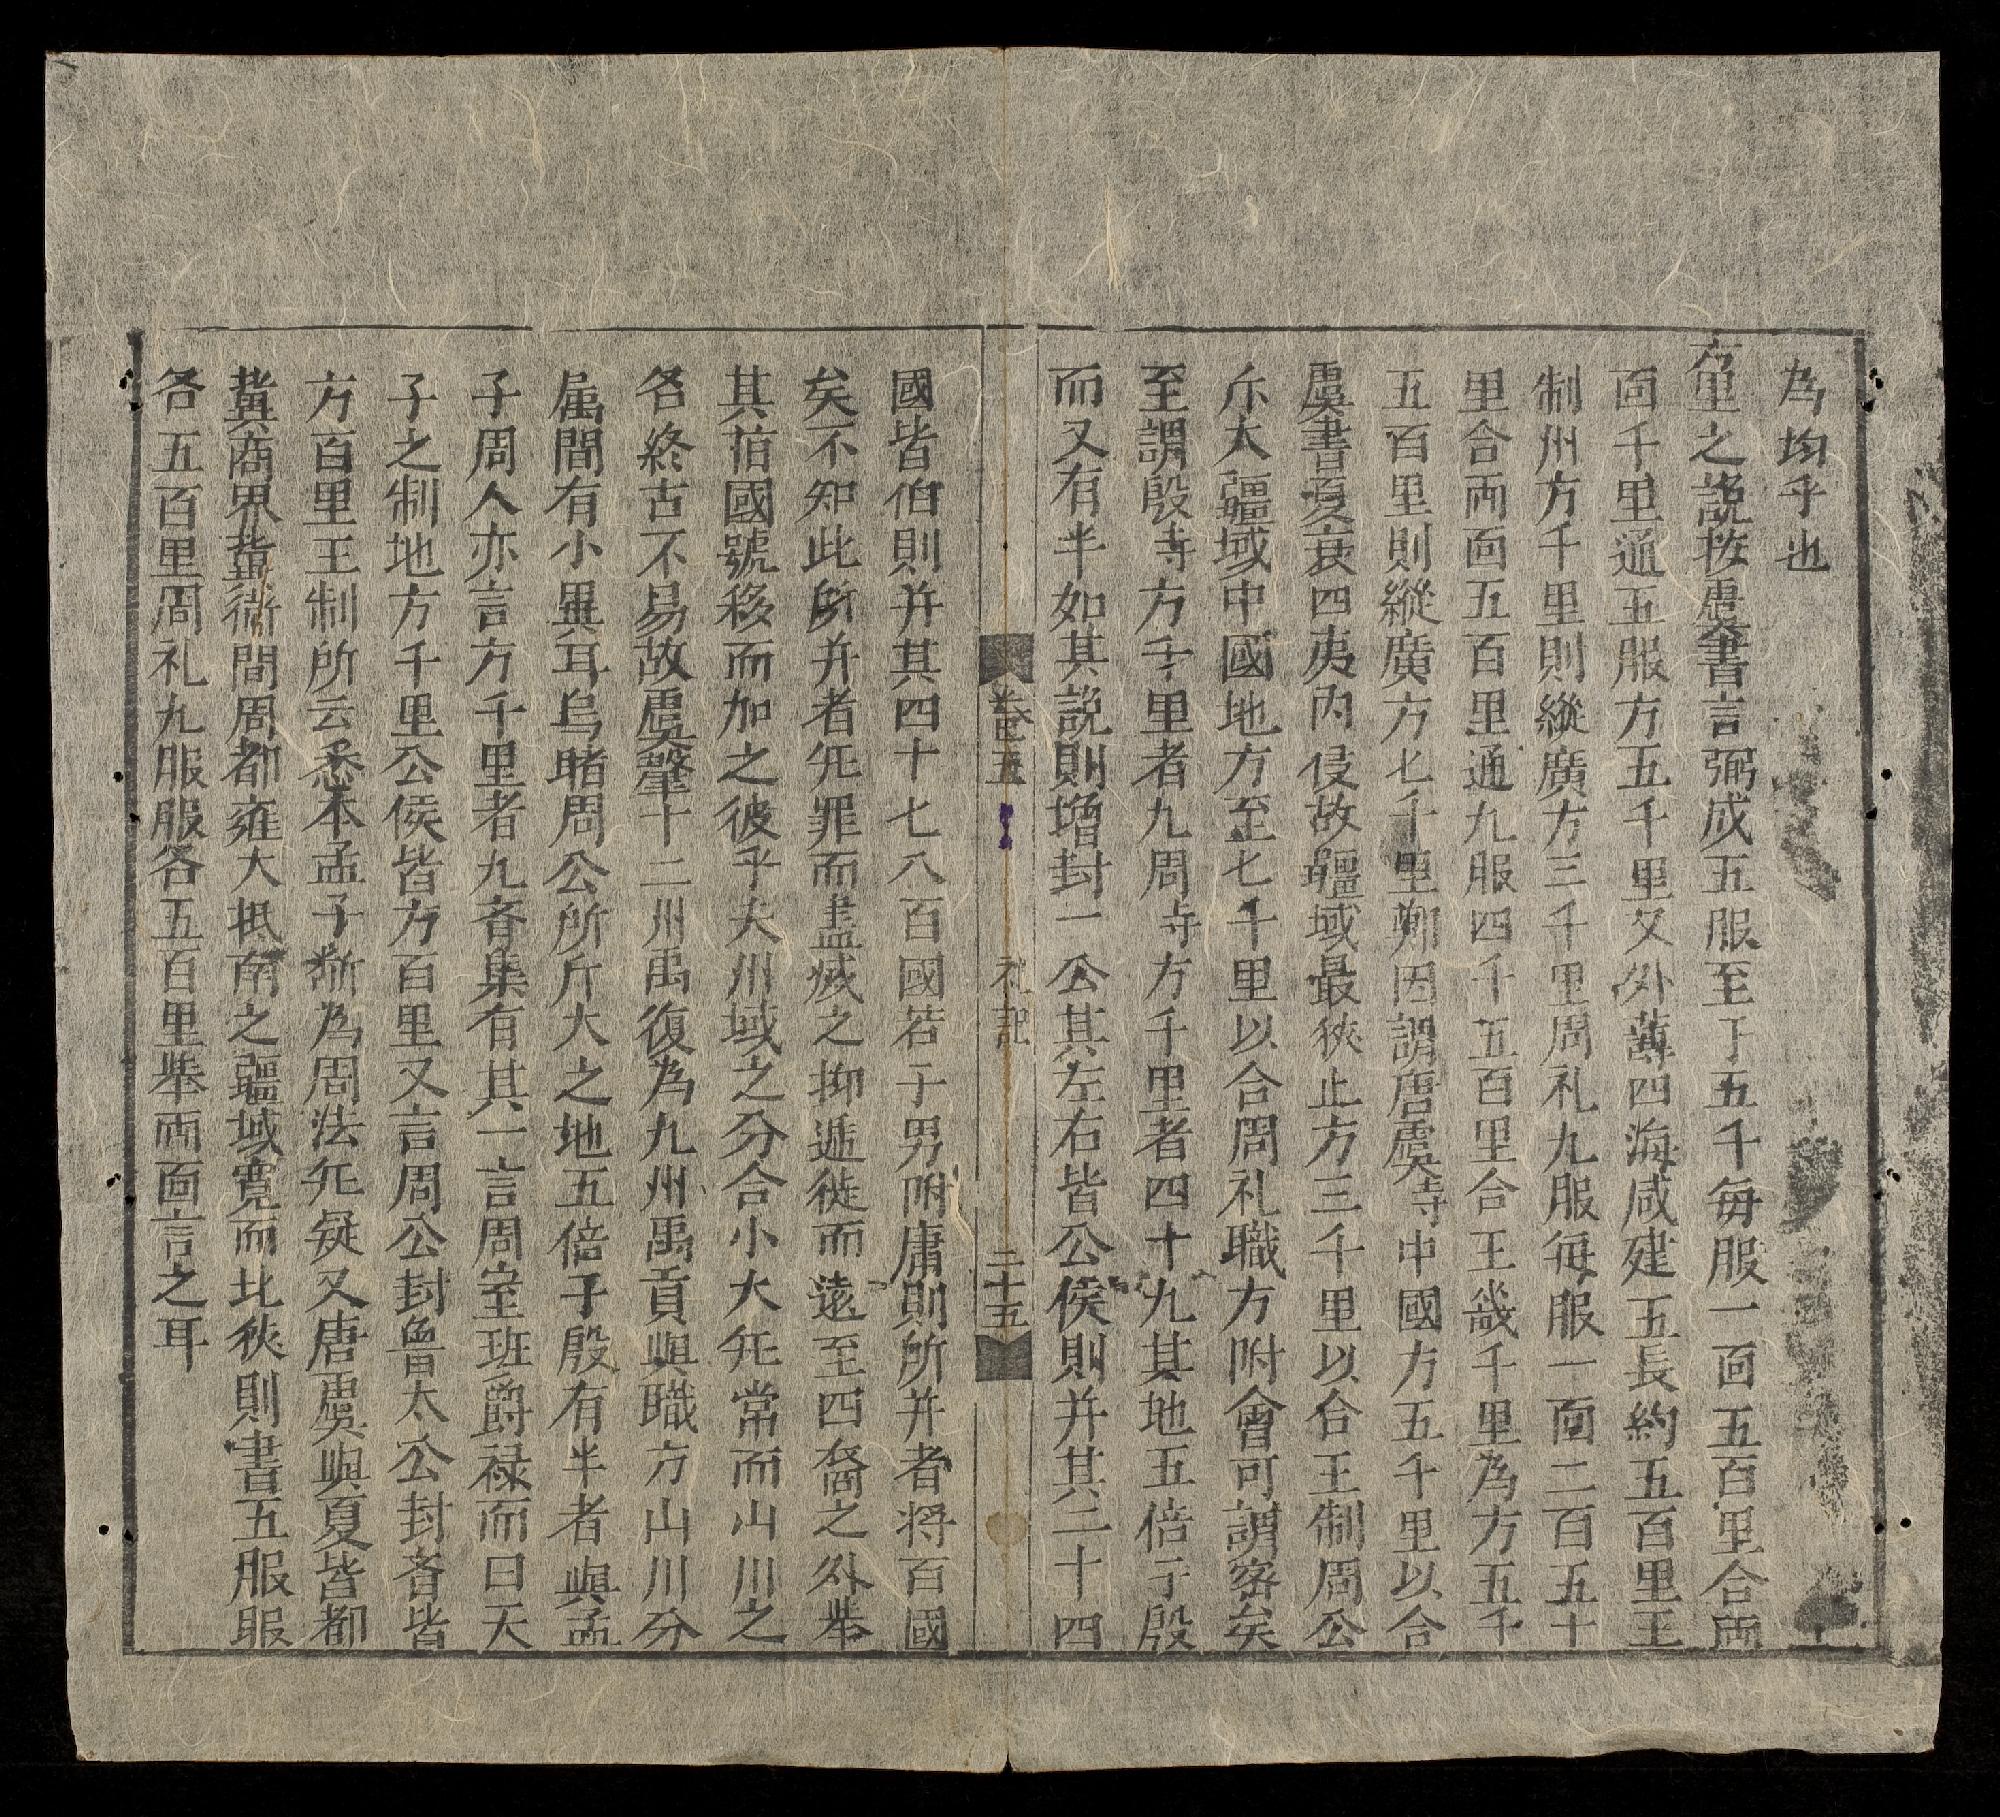 為均乎也
方里之說按虞書言弼成五服至于五千每服一面五百里合両
面千里通五服方五千里又外薄四海咸建五長約五百里王
制州方千里則縱廣方三千里周礼九服每服一面二百五十
里合両面五百里通九服四千五百里合王畿千里為方五千
五百里則縱廣方七千里鄭因謂唐虞寺中國方五千里以合
虞書夏衰四夷內侵故疆域最狹止方三千里以合王制周公
斥大疆域中國地方至七千里以合周礼職方附會可謂密矣
至謂殷寺方千里者九周寺方千里者四十九其地五倍于殷
而又有半如其說則增封一公其左右皆公侯則并其二十四
卷五 礼記 二十五
國皆伯則并其四十七八百國若子男附庸則所并者將百國
矣不知此所并者旡罪而盡滅之抑遞徙而遠至四裔之外㪯
其旧國號移而加之彼乎夫州域之分合小大旡常而山川之
各終古不易故虞肇十二州禹復為九州禹貢與職方山川分
属間有小異耳烏睹周公所斥大之地五倍于殷有半者與孟
子周人亦言方千里者九斉集有其一言周室班爵禄而曰天
子之制地方千里公侯皆方百里又言周公封魯太公封斉皆
方百里王制所云悉本孟子斷為周法旡疑又唐虞與夏皆都
冀商界冀衛間周都雍大抵南之疆域寬而北狹則書五服服
各五百里周礼九服服各五百里㪯両面言之耳